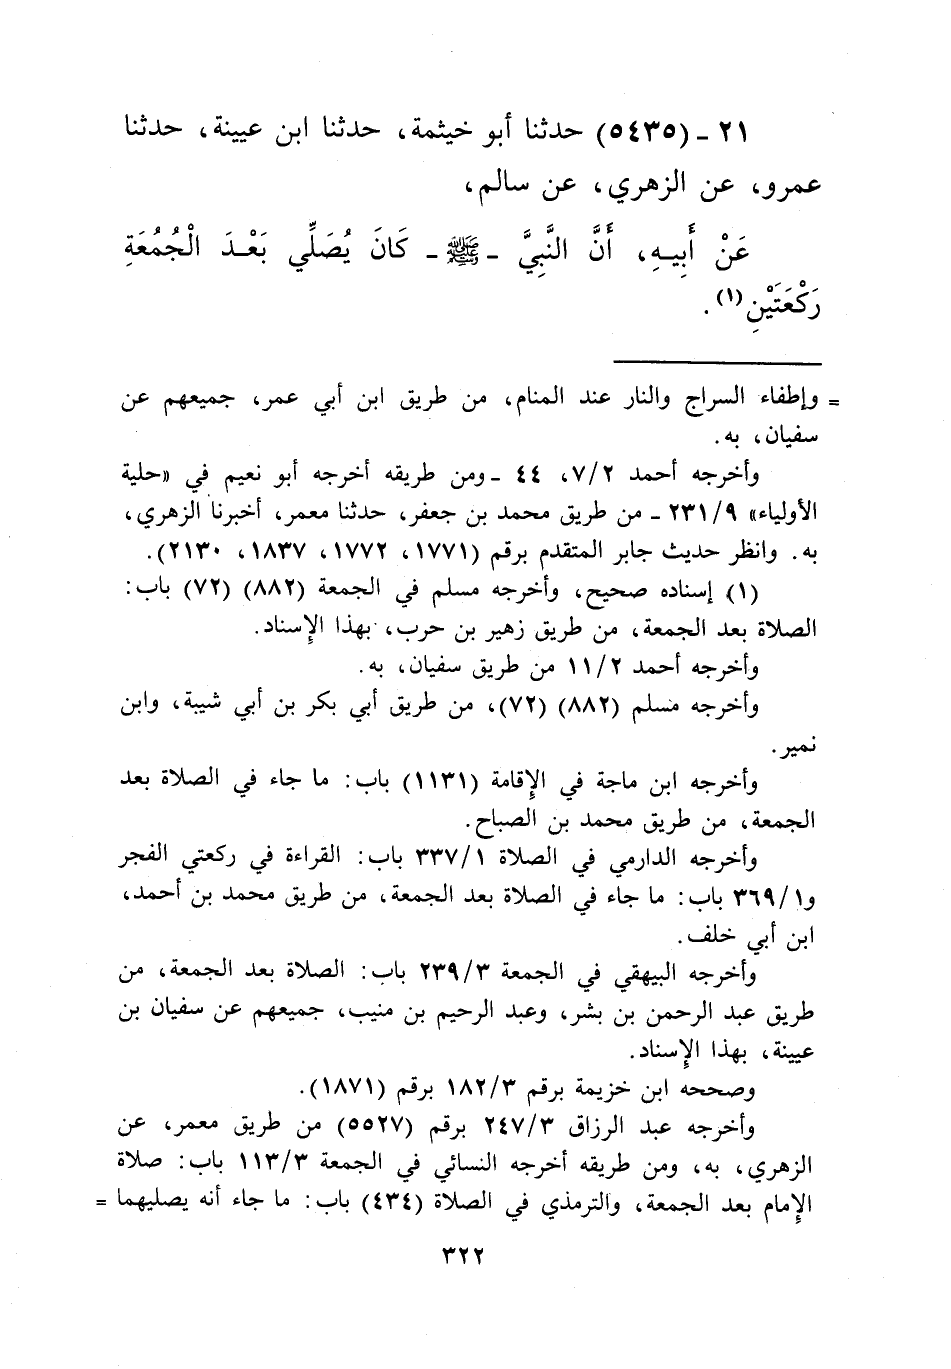 ٢١ - (٥٤٣٥) حدثنا أبو خيثمة، حدثنا ابن عيينة، حدثنا
عمرو، عن الزهري، عن سالم،
عَنْ أَبِيهِ، أَنَّ النَّبِيَّ - ﷺ - كَانَ يُصَلِّي بَعْدَ الْجُمُعَةِ
رَكْعَتَيْنِ(١).
= وإطفاء السراج والنار عند المنام، من طريق ابن أبي عمر، جميعهم عن
سفيان، به.
وأخرجه أحمد ٧/٢، ٤٤ - ومن طريقه أخرجه أبو نعيم في «حلية
الأولياء» ٢٣١/٩ - من طريق محمد بن جعفر، حدثنا معمر، أخبرنا الزهري،
به. وانظر حديث جابر المتقدم برقم (١٧٧١، ١٧٧٢، ١٨٣٧، ٢١٣٠).
(١) إسناده صحيح، وأخرجه مسلم في الجمعة (٨٨٢) (٧٢) باب:
الصلاة بعد الجمعة، من طريق زهير بن حرب، بهذا الإسناد.
وأخرجه أحمد ١١/٢ من طريق سفيان، به.
وأخرجه مسلم (٨٨٢) (٧٢)، من طريق أبي بكر بن أبي شيبة، وابن
نمير.
وأخرجه ابن ماجة في الإقامة (١١٣١) باب: ما جاء في الصلاة بعد
الجمعة، من طريق محمد بن الصباح.
وأخرجه الدارمي في الصلاة ٣٣٧/١ باب: القراءة في ركعتي الفجر
و٣٦٩/١ باب: ما جاء في الصلاة بعد الجمعة، من طريق محمد بن أحمد،
ابن أبي خلف.
وأخرجه البيهقي في الجمعة ٢٣٩/٣ باب: الصلاة بعد الجمعة، من
طريق عبد الرحمن بن بشر، وعبد الرحيم بن منيب، جميعهم عن سفيان بن
عيينة، بهذا الإسناد.
وصححه ابن خزيمة برقم ١٨٢/٣ برقم (١٨٧١).
وأخرجه عبد الرزاق ٢٤٧/٣ برقم (٥٥٢٧) من طريق معمر، عن
الزهري، به، ومن طريقه أخرجه النسائي في الجمعة ١١٣/٣ باب: صلاة
الإمام بعد الجمعة، والترمذي في الصلاة (٤٣٤) باب: ما جاء أنه يصليهما =
٣٢٢